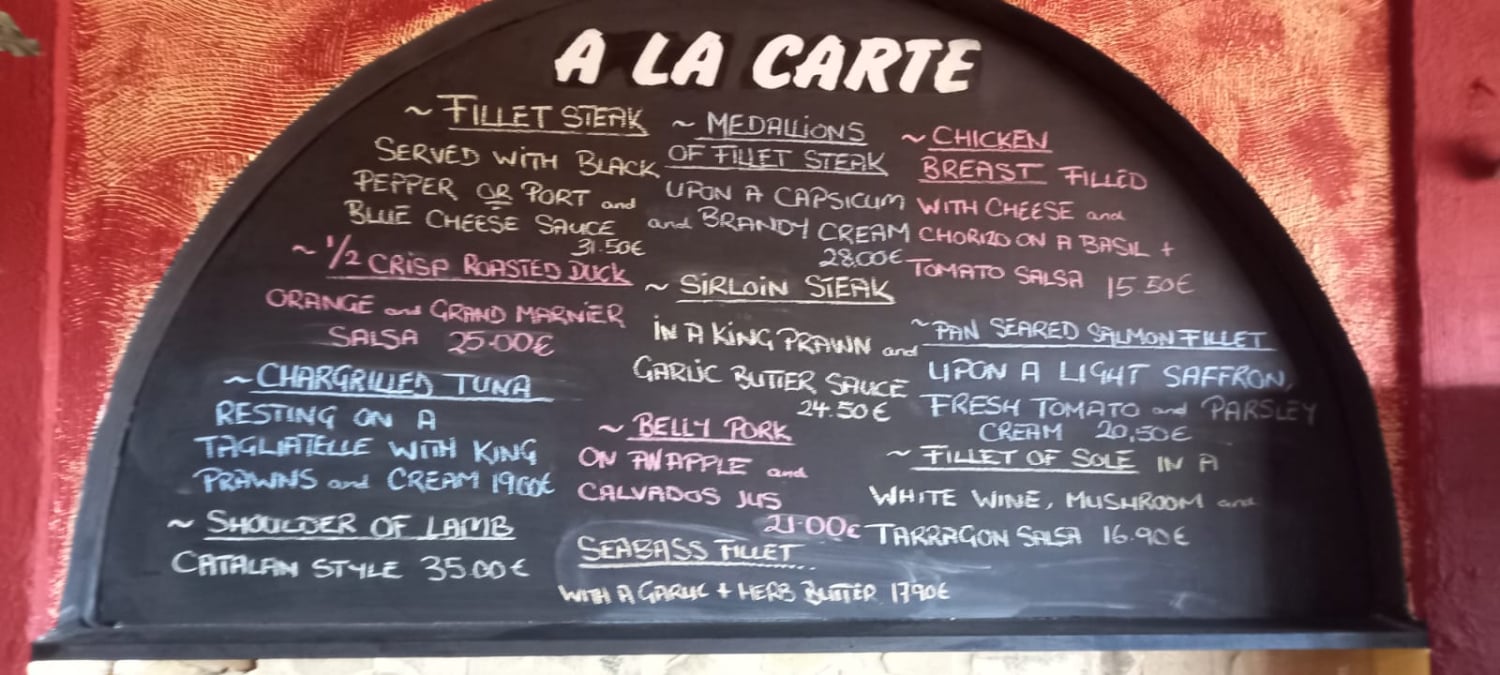 A LA CARTE
~ FILLET STEAK
SERVED WITH BLACK
PEPPER OR PORT and
BLUE CHEESE SAUCE
31.50€
~ 1/2 CRISP ROASTED DUCK
ORANGE and GRAND MARNIER
SALSA 25.00€
~ CHARGRILLED TUNA
RESTING ON A
TAGLIATELLE WITH KING
PRAWNS and CREAM 19.00€
~ SHOULDER OF LAMB
CATALAN STYLE 35.00€
~ MEDALLIONS
OF FILLET STEAK
UPON A CAPSICUM
and BRANDY CREAM
28.00€
~ SIRLOIN STEAK
IN A KING PRAWN and
GARLIC BUTTER SAUCE
24.50€
~ BELLY PORK
ON AN APPLE and
CALVADOS JUS
21.00€
SEABASS FILLET
WITH A GARLIC + HERB BUTTER 17.90€
~ CHICKEN
BREAST FILLED
WITH CHEESE and
CHORIZO ON A BASIL +
TOMATO SALSA 15.50€
~ PAN SEARED SALMON FILLET
UPON A LIGHT SAFFRON,
FRESH TOMATO and PARSLEY
CREAM 20,50€
~ FILLET OF SOLE IN A
WHITE WINE, MUSHROOM and
TARRAGON SALSA 16.90€